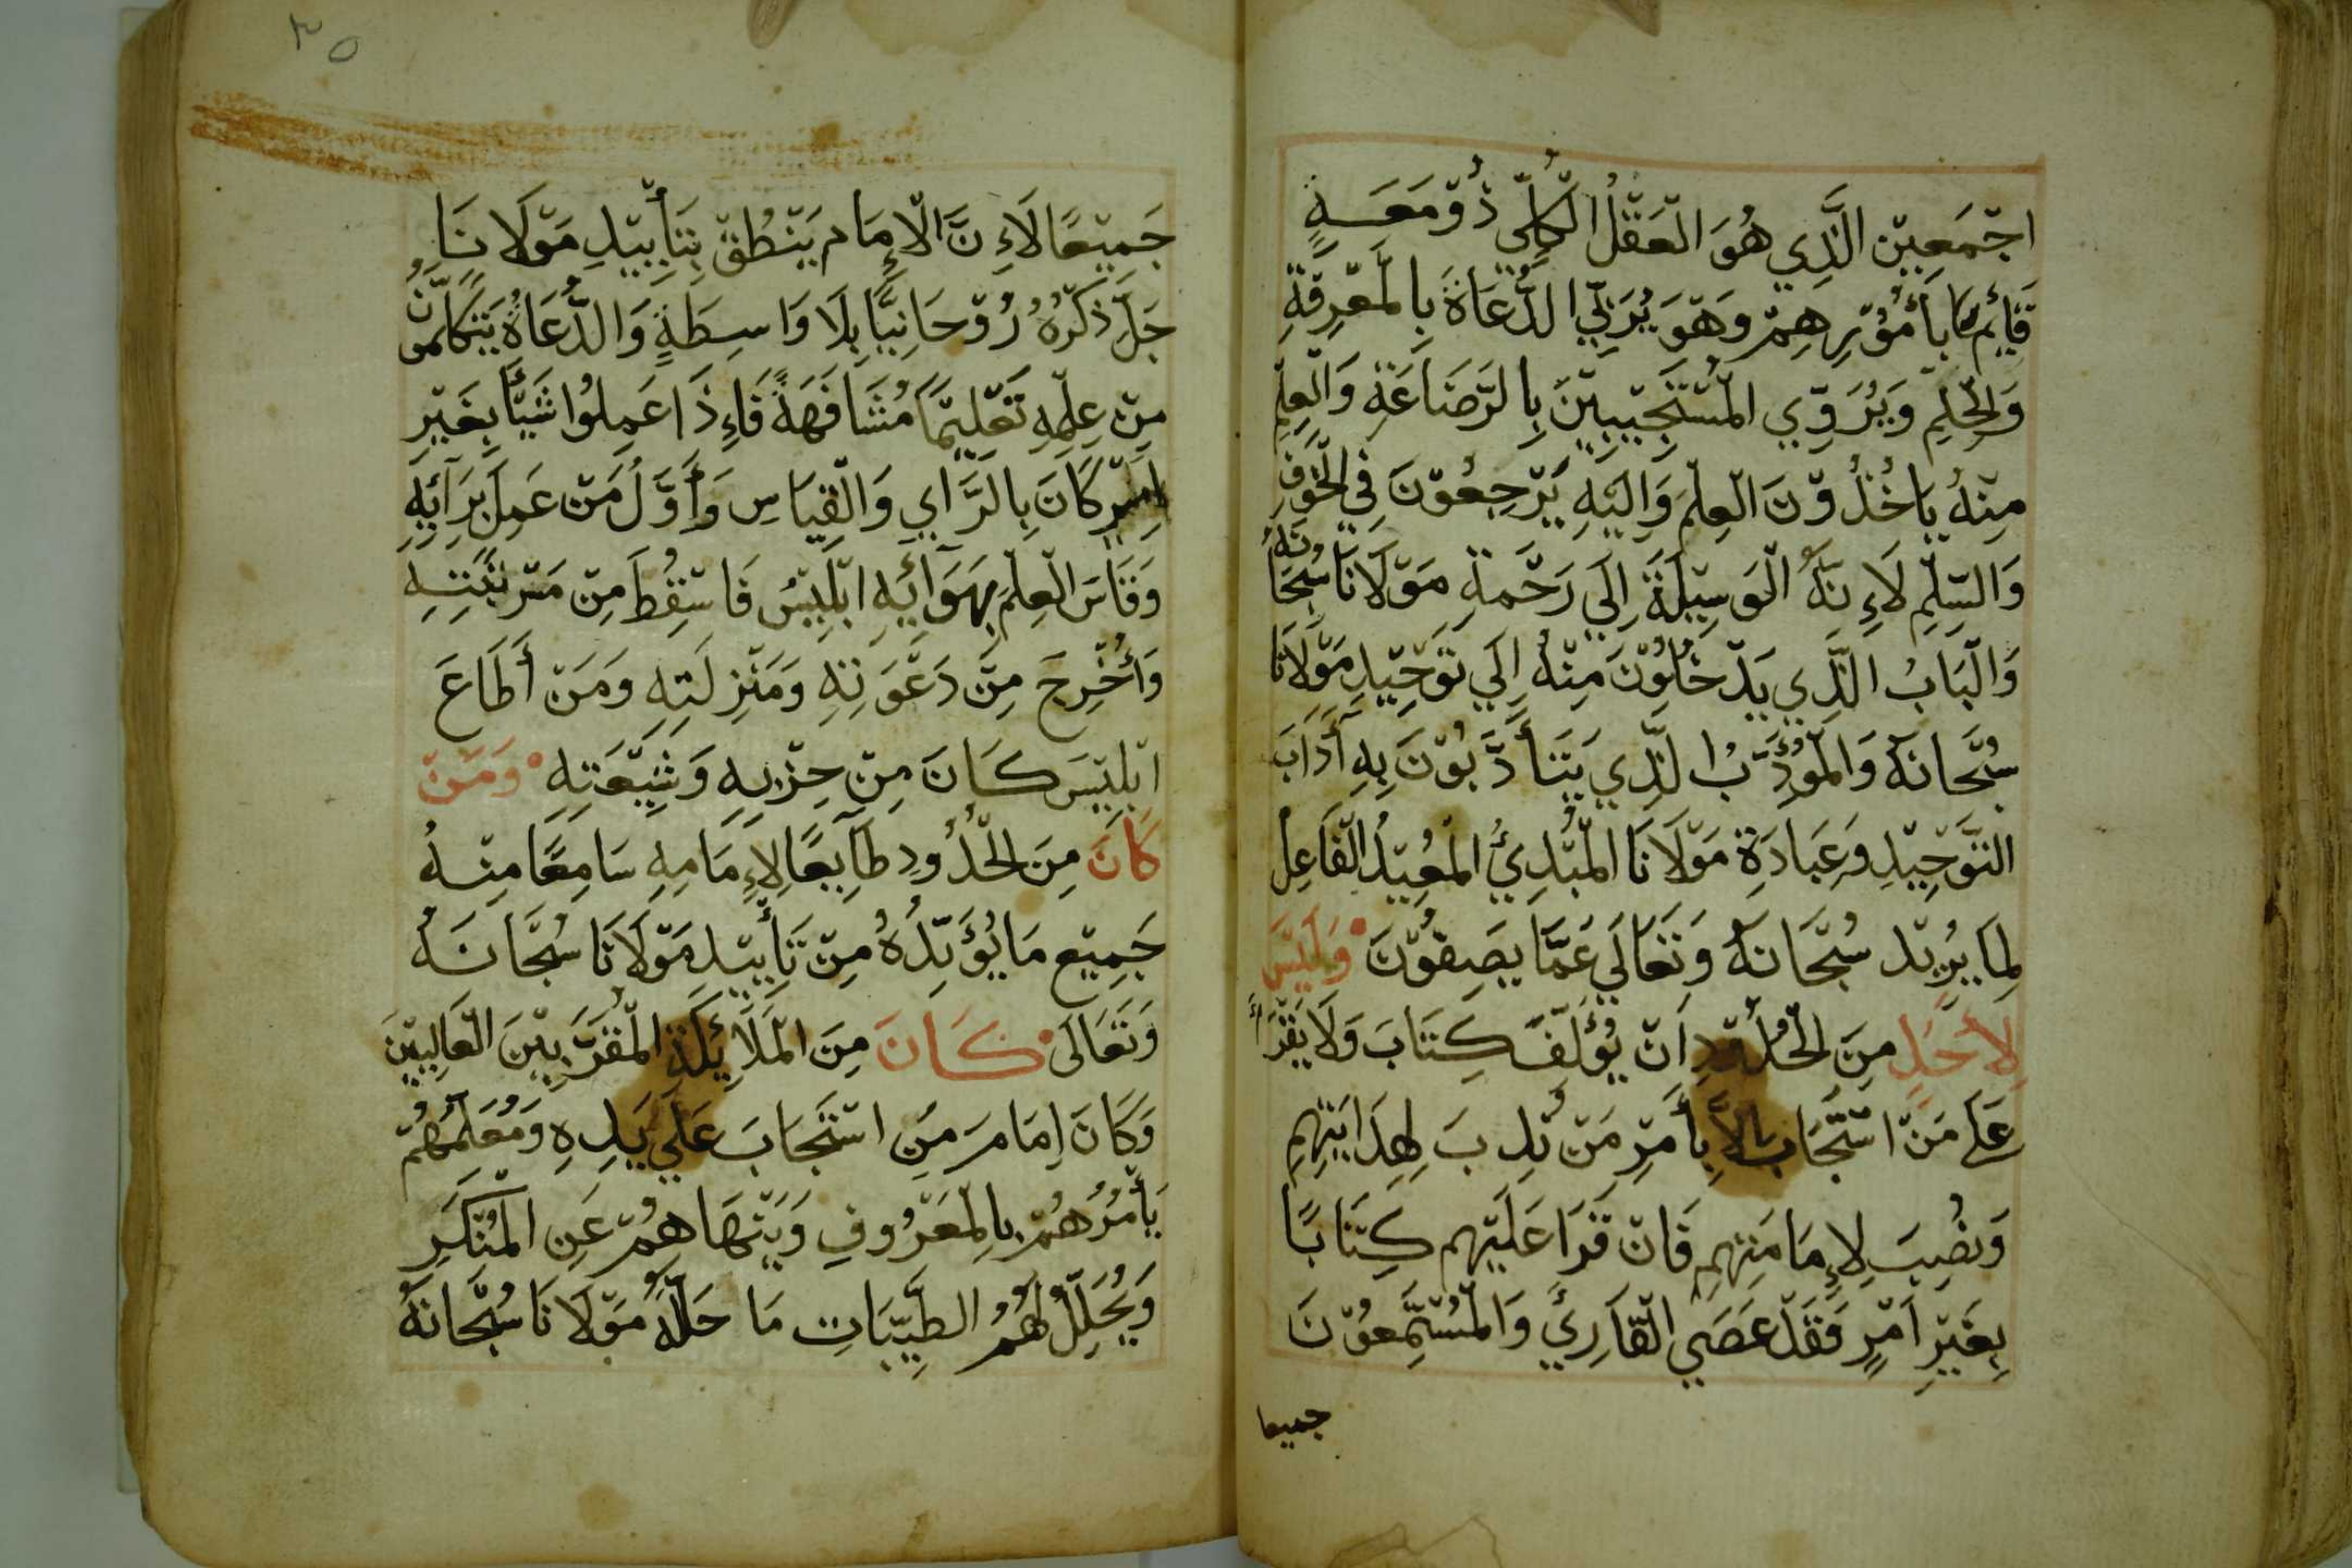 اجْمَعِيْن الَّذِي هُوَ الْعَقْلُ الْكُلِّي ذُوْمَعَـةٍ
قَايِمًا بِأُمُوْرِهِمْ وَهْوَ يُرَبِّي الدُّعَاةَ بِالْمَعْرِفَةِ
وَالْحِلْمِ وَيُرَوِّي الْمُسْتَجِيْبِيْنَ بِالرَّضَاعَةِ وَالْعِلْمِ
مِنْهُ يَاخُذُوْنَ الْعِلْمَ وَالِيَهِ يَرْجِعُوْنَ فِي الْخَوْفِ
وَالسِّلْمِ لَاِءِنَّهُ الْوَسِيْلَةَ اِلَي رَحْمَةِ مَوْلَانَا سُبْحَانَهُ
وَالْبَابُ الَّذِي يَدْخُلُوْنَ مِنْهُ اِلَي تَوْحِيْدِ مَوْلَانَا
سُبْحَانَهُ وَالْمُؤَدِّبُ الَّذِي يَتَأَدَّبُوْنَ بِهِ أَدَابَ
التَّوْحِيْدِ وَعِبَادَةِ مَوْلَانَا الْمُبْدِيُ الْمُعِيْدُ الْفَاعِل
لِمَا يُرِيْد سُبْحَانَهُ وَتَعَالَي عَمَّا يَصِفُوْنَ وَلَيْسَ
لِأَحَدٍ مِنَ الْحُدُوْدِ اَنْ يُؤَلِّفَ كِتَابَ وَلَا يَقْرَأُ
عَلَ مَنْ اسْتَجَابَ اِلاَّ بِأَمْرِ مَنْ نُدِبَ لِهِدَايَتِهِمِ
وَنُصِبَ لِاِمَامَتِهِمِ فَانْ قَرَا عَلَيْهِم كِتَابًا
بِغَيْرِ اَمْرٍ فَقَدْ عَصَي الْقَارِئَ وَالْمُسْتَمِعُوْنَ
جميعا
٣٥
جَمِيْعًا لَاءِنَّ الْاِمَام يَنْطُقْ بِتَأْيِيْدِ مَوْلَانَا
جَلَّ ذِكْرُهُ رُوْحَانِيًّا بِلَا وَاسِطَةٍ وَالدُّعَاةُ يَتَكَلَّمُوْنَ
مِنْ عِلْمِهِ تَعْلِيْمًا مُشَافَهَةً فَاِءِذَا عَمِلُوا شَيًّا بِغَيْرِ
اَمْرٍ كَانَ بِالرَّايِ وَالْقِيَاسِ وَأَوَّلُ مَنْ عَمِلَ بِرَآيَهِ
وَقَاسَ الْعِلْمَ بِهَوَآيَهِ ابْلِيْسُ فَاسْقِطَ مِنْ مَرْتَبَتِهِ
وَأُخْرِجَ مِنْ دَعْوَتِهِ وَمَنْزِلَتِهِ وَمَنْ أَطَاعَ
ابْلِيْسَ كَانَ مِنْ حِزْبِهِ وَشِيْعَتِهِ وَمَنْ
كَانَ مِنَ الْحُدُودِ طَآيِعًا لِاِمَامِهِ سَامِعًا مِنْهُ
جَمِيْع مَا يُؤَيِّدُهُ مِنْ تَأْيِيْدِ مَوْلَانَا سُبْحَانَهُ
وَتَعَالَى كَانَ مِنَ الْمَلَايِئكَةِ الْمُقَرَّبِيْنَ الْعَالِيِيْنَ
وَكَانَ اِمَامَ مَنِ اسْتَجَابَ عَلَي يَدِهِ وَمُعَلِّمُهُمْ
يَأْمُرُهُمْ بِالْمَعْرُوفِ وَيَنْهَاهِمُ عَنِ الْمُنْكَرِ
وَيُحَلِّلُ لَهُمُ الطَّيِّبَاتِ مَا حَلَّلَهُ مَوْلَانَا سُبْحَانَهُ